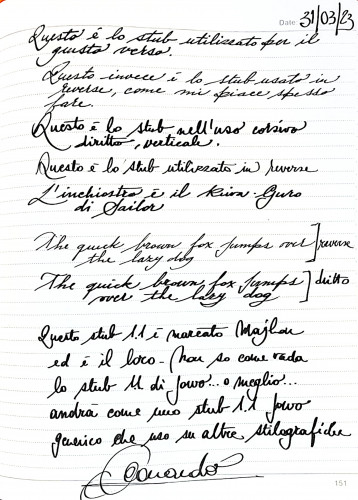 Date 31/03/23
Questo è lo stub utilizzato per il
giusto verso.
Questo invece è lo stub usato in
reverse, come mi piace spesso
fare.
Questo è lo stub nell'uso corsivo
diritto, verticale.
Questo è lo stub utilizzato in reverse
L'inchiostro è il Kiwa-Guro
di Sailor
The quick brown fox jumps over ] reverse
the lazy dog
The quick brown fox jumps ] diritto
over the lazy dog
Questo stub 1.1 è marcato Majhon
ed è il loro - Non so come vada
lo stub 1.1 di Jowo... o meglio...
andrà come uno stub 1.1 Jowo
generico che uso su altre stilografiche
151